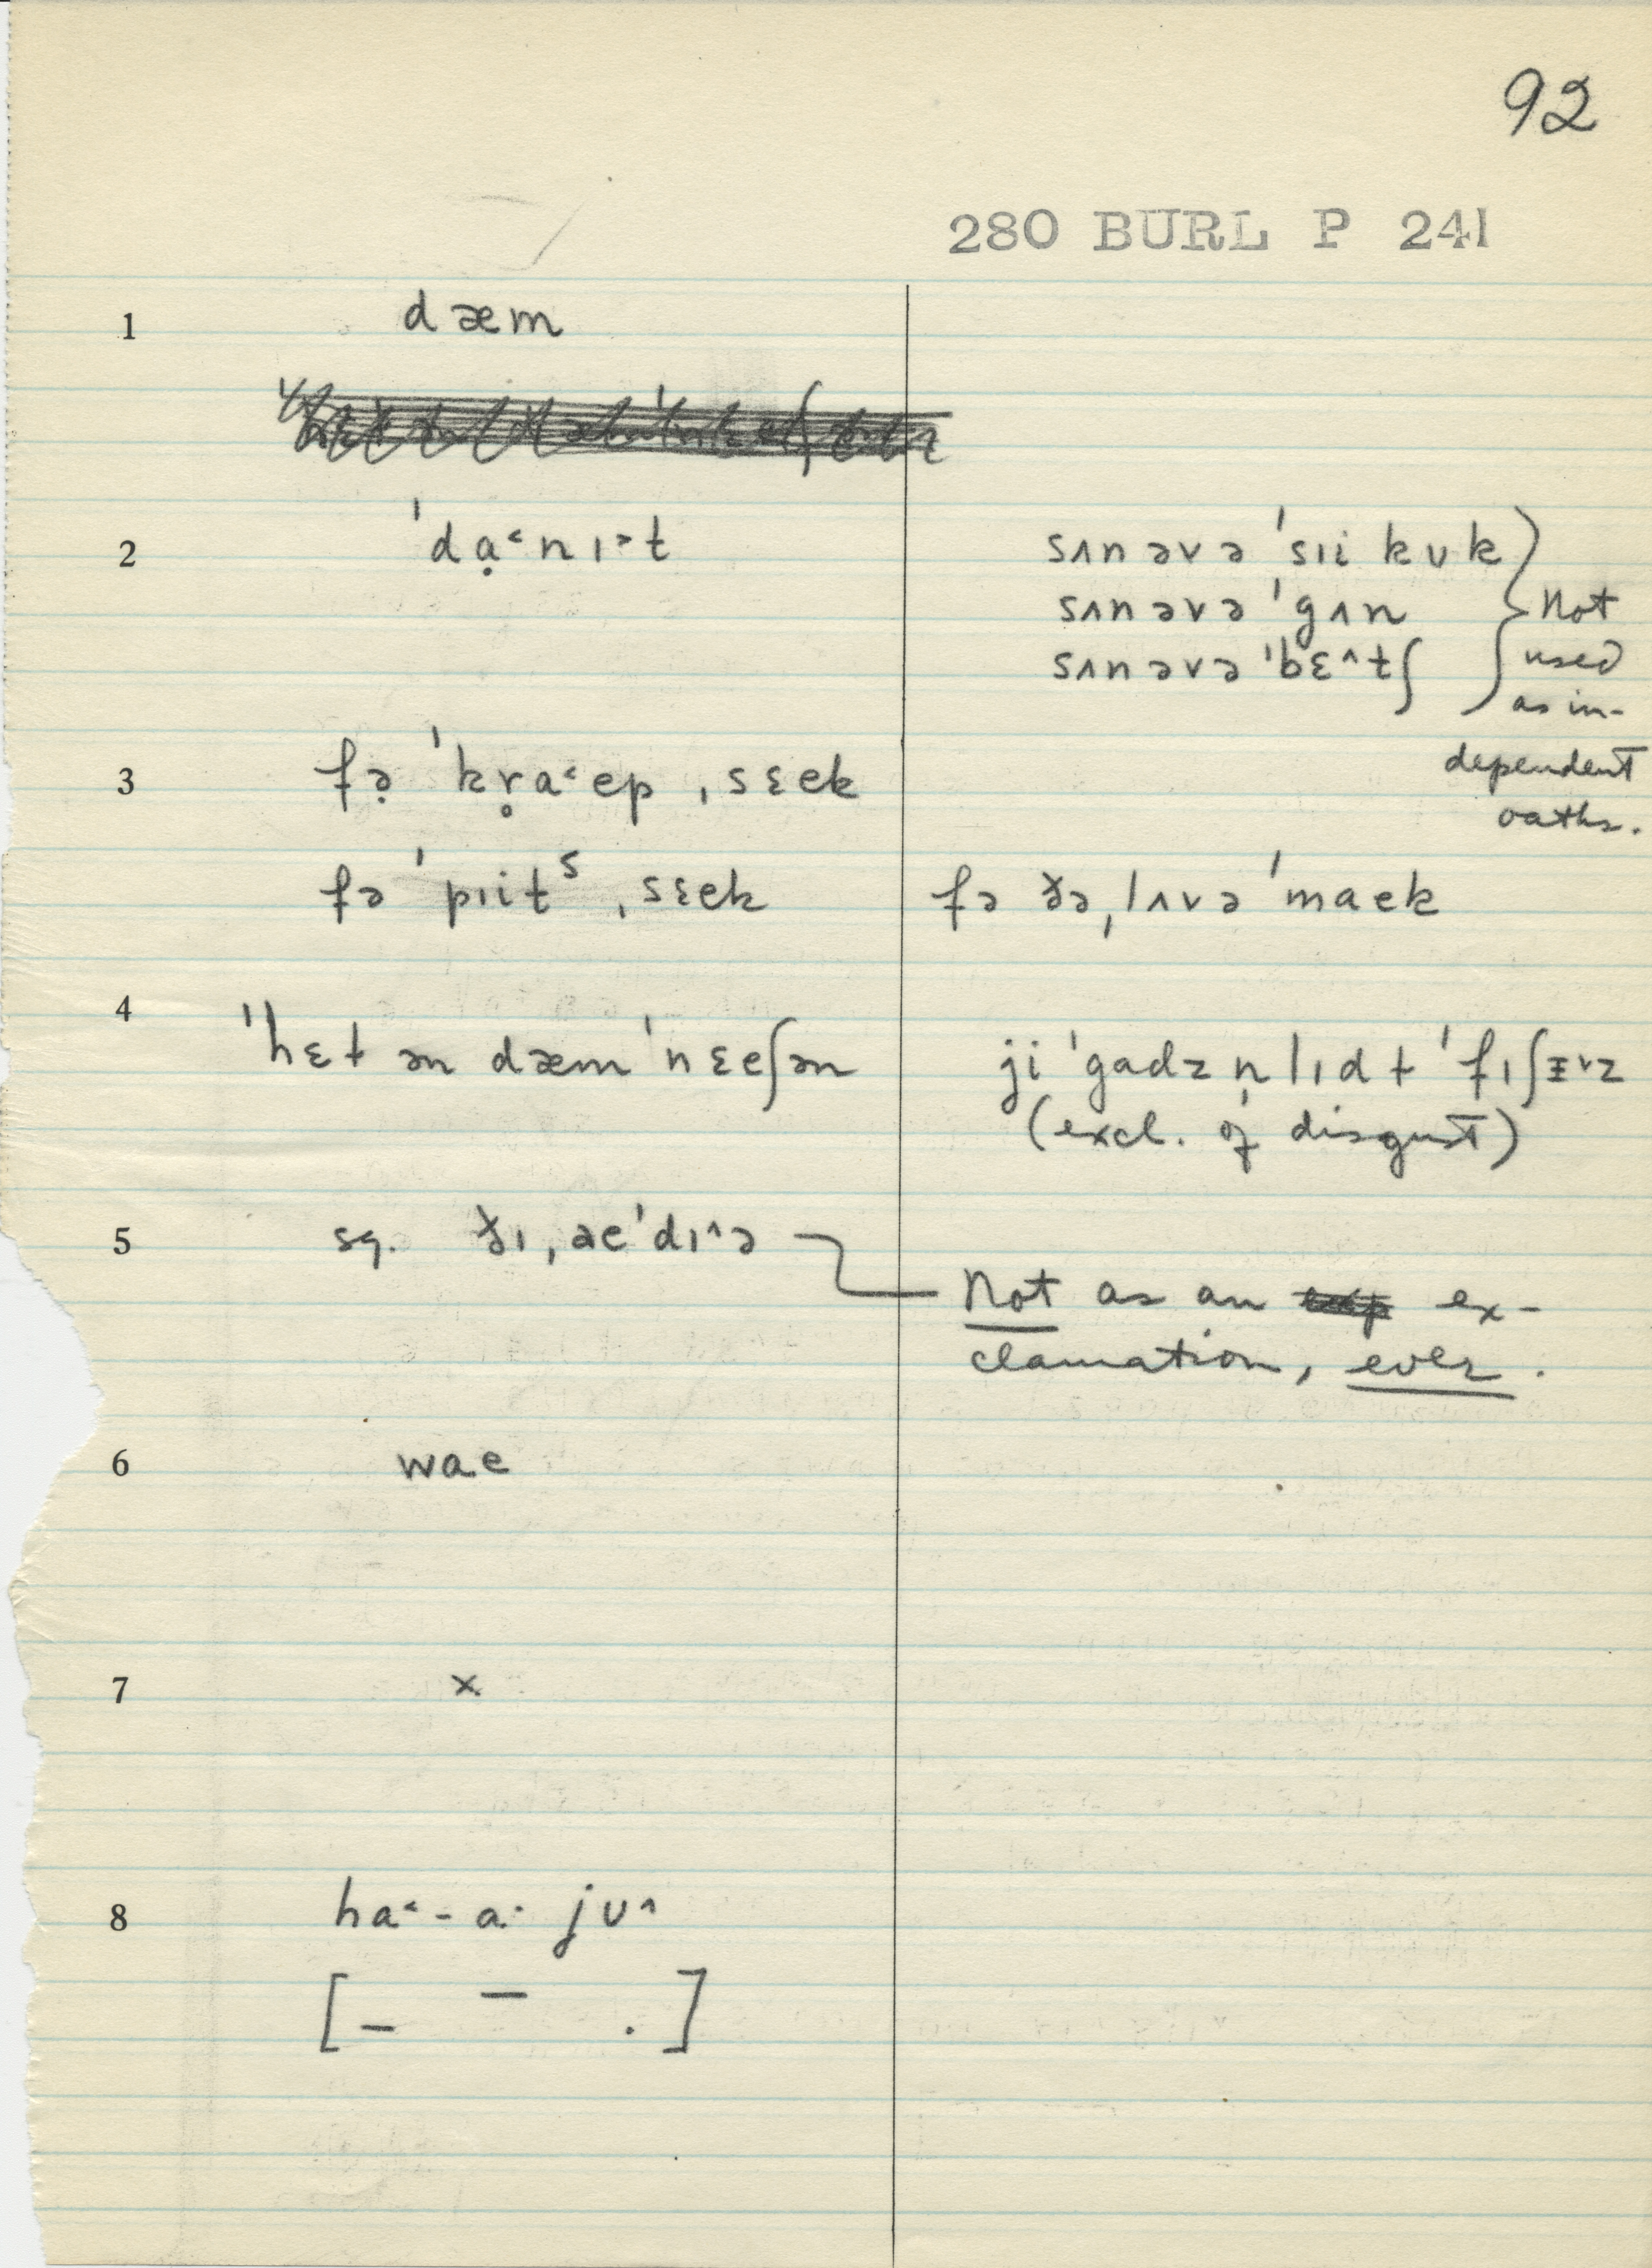 92
280 BURL P 241
1 dæm
2 ˈdạ˂nɪ˃t
sʌnəvə ˈsɪi kʊk
sʌnəvə ˈgʌn
sʌnəvə ˈbɛ^tʃ
Not
used
as in-
dependent
oaths.
3 fə̣ ˈkr̥a˂ep ˌsɛek
fə ˈpɪitˢ ˌsɛek
fə ðəˌlʌvə ˈmaek
4 ˈhɛt ən dæm ˈnɛeʃən
ji ˈgadz n̩ lɪdt ˈfɪʃɪ˅z
(excl. of disgust)
5 sq. ðɪˌaeˈdɪ^ə
Not as an ex-
clamation, ever.
6 wae
7 ×
8 ha˂-a· jʊ^
[– ¯ .]